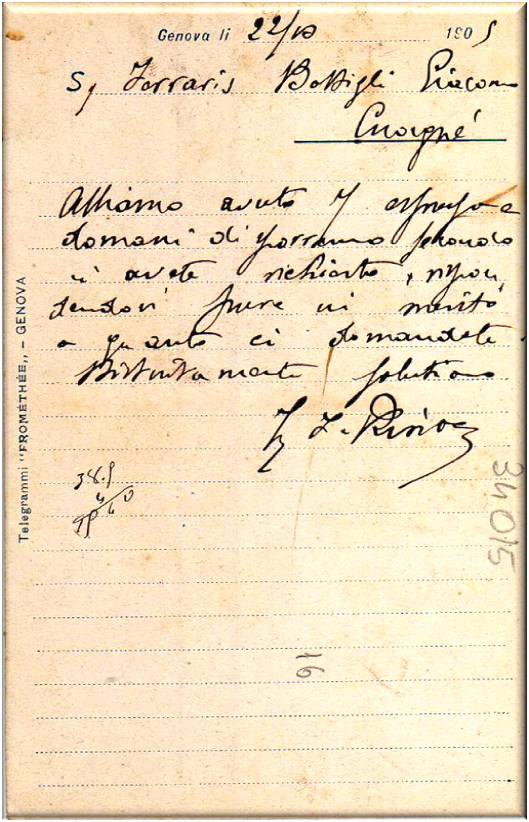 Genova li 22/10 1905
S, Ferraris Bottigli Giacomo
Cuorgné
Abbiamo avuto
domani di secondo
ci avete richiesto, rispon
dendovi pure in merito
a quanto ci domandate
Distintamente salutiamo
Telegrammi "PROMÉTHÉE,, — GENOVA
34015
16